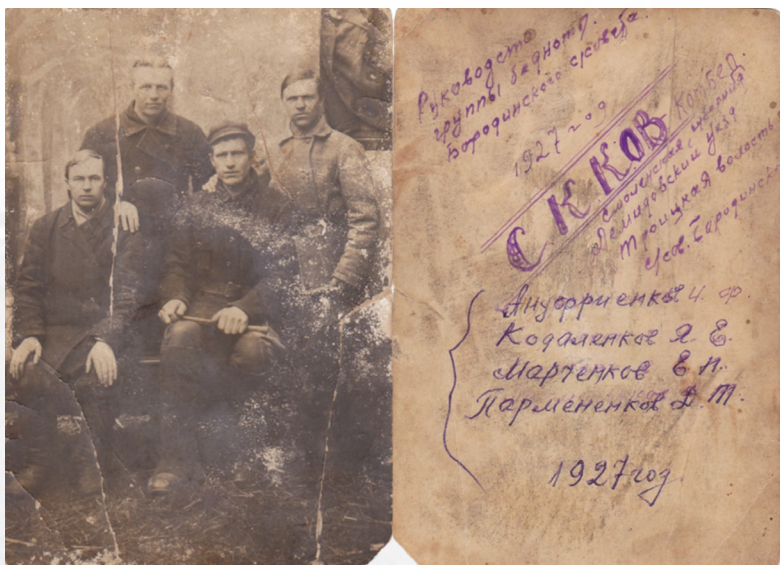 Руководство
группы бедноты.
Бородинского с/совета.
1927 год
СККОВ Комбед.
Смоленская губерния
Демидовский уезд
Троицкая волость
с/сов. Бородинский
Ануфриенков И. Ф.
Кодаленков Я. Е.
Марченков Е Н.
Пармененков Д. Т.
1927 год.